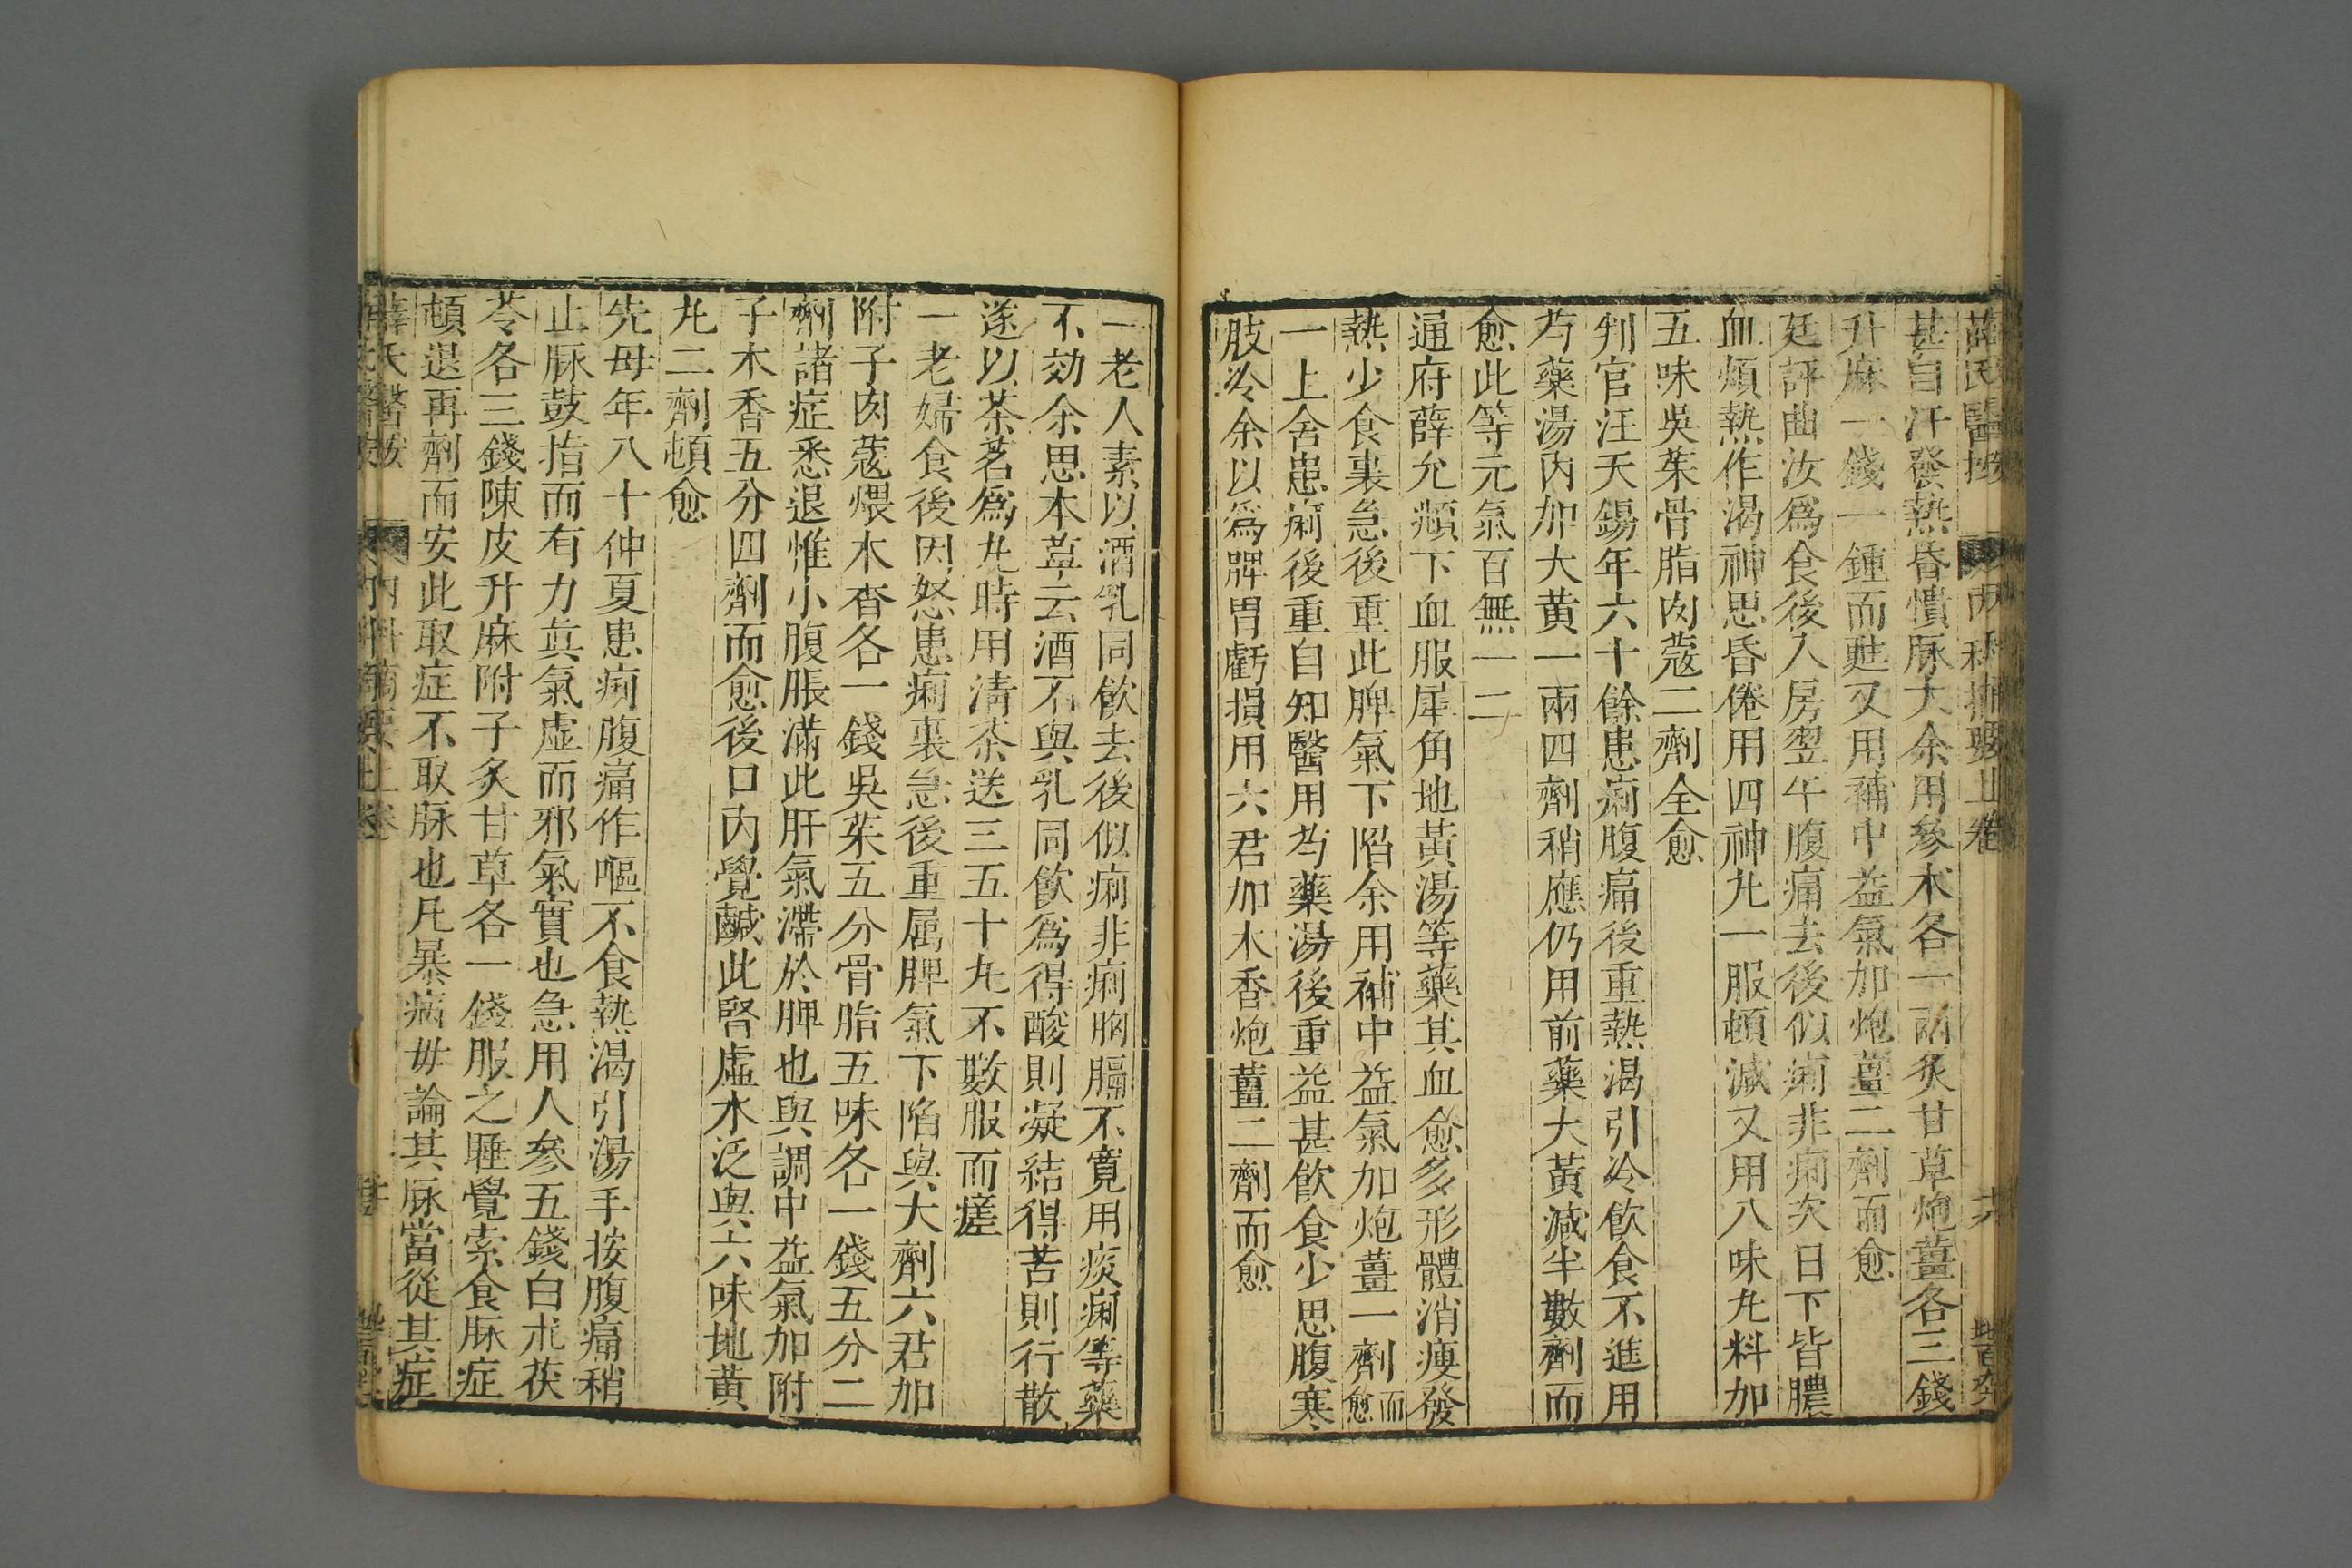 薛氏醫按 內科摘要上卷 十六
甚自汗發熱昏憒脉大余用參术各一兩炙甘草炮薑各三錢
升麻一錢一鍾而甦又用補中益氣加炮薑二劑而愈
廷評曲汝爲食後入房翌午腹痛去後似痢非痢次日下皆膿
血煩熱作渴神思昏倦用四神丸一服頓減又用八味丸料加
五味吳茱骨脂肉蔻二劑全愈
判官汪天錫年六十餘患痢腹痛後重熱渴引冷飲食不進用
芍藥湯內加大黃一兩四劑稍應仍用前藥大黃減半數劑而
愈此等元氣百無一二
通府薛允頫下血服犀角地黃湯等藥其血愈多形體消瘦發
熱少食裏急後重此脾氣下陷余用補中益氣加炮薑一劑而愈
一上舍患痢後重自知醫用芍藥湯後重益甚飲食少思腹寒
肢冷余以爲脾胃虧損用六君加木香炮薑二劑而愈
一老人素以酒乳同飲去後似痢非痢胸膈不寬用痰痢等藥
不効余思本草云酒不與乳同飲爲得酸則凝結得苦則行散
遂以茶茗爲丸時用清茶送三五十丸不數服而瘥
一老婦食後因怒患痢裏急後重属脾氣下陷與大劑六君加
附子肉蔻煨木香各一錢吳茱五分骨脂五味各一錢五分二
劑諸症悉退惟小腹脹滿此肝氣滯於脾也與調中益氣加附
子木香五分四劑而愈後口內覺鹹此腎虛水泛與六味地黃
丸二劑頓愈
先母年八十仲夏患痢腹痛作嘔不食熱渴引湯手按腹痛稍
止脉鼓指而有力眞氣虛而邪氣實也急用人參五錢白朮茯
苓各三錢陳皮升麻附子炙甘草各一錢服之睡覺索食脉症
頓退再劑而安此取症不取脉也凡暴病毋論其脉當從其症
薛氏醫按 內科摘要上卷